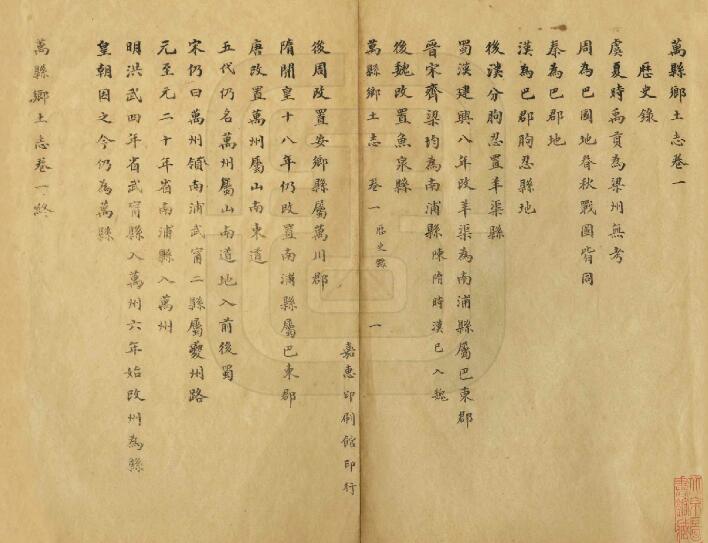 萬縣鄉土志卷一
歷史錄
虞夏時禹貢為梁州無考
周為巴國地春秋戰國皆同
秦為巴郡地
漢為巴郡朐忍縣地
後漢分朐忍置羊渠縣
蜀漢建興八年改羊渠為南浦縣屬巴東郡
晉宋齊梁均為南浦縣 陳隋時漢已入魏
後魏改置魚泉縣
萬縣鄉土志 卷一 歷史錄 一
嘉惠印刷館印行
後周改置安鄉縣屬萬川郡
隋開皇十八年仍改置南浦縣屬巴東郡
唐改置萬州屬山南東道
五代仍名萬州屬山南道地入前後蜀
宋仍曰萬州領南浦武甯二縣屬夔州路
元至元二十年省南浦縣入萬州
明洪武四年省武甯縣入萬州六年始改州為縣
皇朝因之今仍為萬縣
萬縣鄉土志卷一終